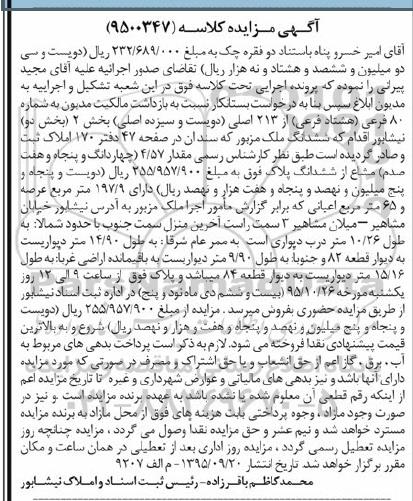 آگهی مزایده کلاسه (۹۵۰۰۳۴۷)
آقای امیر خسرو پناه باستناد دو فقره چک به مبلغ ۲۳۲/۶۸۹/۰۰۰ ریال (دویست و سی
دو میلیون و ششصد و هشتاد و نه هزار ریال) تقاضای صدور اجرائیه علیه آقای مجید
پیرانی را نموده که پرونده اجرایی تحت کلاسه فوق در این شعبه تشکیل و اجرائیه به
مدیون ابلاغ سپس بنا به درخواست بستانکار نسبت به بازداشت مالکیت مدیون به شماره
۸۰ فرعی (هشتاد فرعی) از ۲۱۳ اصلی (دویست و سیزده اصلی) بخش ۲ (بخش دو)
نیشابور اقدام که ششدانگ ملک مزبور که سندان در صفحه ۴۷ دفتر ۱۷۰ املاک ثبت
و صادر گردیده است طبق نظر کارشناس رسمی مقدار ۴/۵۷ (چهاردانگ و پنجاه و هفت
صدم) مشاع از ششدانگ پلاک فوق به مبلغ ۲۵۵/۹۵۷/۹۰۰ ریال (دویست و پنجاه و
پنج میلیون و نهصد و پنجاه و هفت هزار و نهصد ریال) دارای ۱۹۷/۹ متر مربع عرصه
و ۶۵ متر مربع اعیانی که برابر گزارش مأمور اجرا ملک مزبور به آدرس نیشابور خیابان
مشاهیر – میلان مشاهیر ۲ سمت راست آخرین منزل سمت جنوب با حدود شمالا: به
طول ۱۰/۲۶ متر درب دیواری است به ممر عام شرقا: به طول ۱۴/۹۰ متر دیواریست
به دیوار قطعه ۸۲ و جنوبا: به طول ۹/۹۰ متر دیواریست به باقیمانده اراضی غربا: به طول
۱۵/۱۶ متر دیواریست به دیوار قطعه ۸۴ میباشد و پلاک فوق از ساعت ۹ الی ۱۲ روز
یکشنبه مورخه ۹۵/۱۰/۲۶ (بیست و ششم دی ماه نود و پنج) در اداره ثبت اسناد نیشابور
از طریق مزایده حضوری بفروش میرسد. مزایده از مبلغ ۲۵۵/۹۵۷/۹۰۰ ریال (دویست
و پنجاه و پنج میلیون و نهصد و پنجاه و هفت هزار و نهصد ریال) شروع و به بالاترین
قیمت پیشنهادی نقدا فروخته می شود. لازم به ذکر است پرداخت بدهی های مربوط به
آب، برق، گاز اعم از حق انشعاب و یا حق اشتراک و مصرف در صورتی که مورد مزایده
دارای آنها باشد و نیز بدهی های مالیاتی و عوارض شهرداری و غیره تا تاریخ مزایده اعم
از اینکه رقم قطعی آن معلوم شده یا نشده باشد به عهده برنده مزایده است و نیز در
صورت وجود مازاد، وجوه پرداختی بابت هزینه های فوق از محل مازاد به برنده مزایده
مسترد خواهد شد و نیم عشر و حق مزایده نقدا وصول می گردد، مزایده چنانچه روز
مزایده تعطیل رسمی گردد، مزایده روز اداری بعد از تعطیلی در همان ساعت و مکان
مقرر برگزار خواهد شد تاریخ انتشار ۱۳۹۵/۰۹/۲۰- م الف ۹۲۰۷
محمدکاظم باقرزاده - رئیس ثبت اسناد و املاک نیشابور